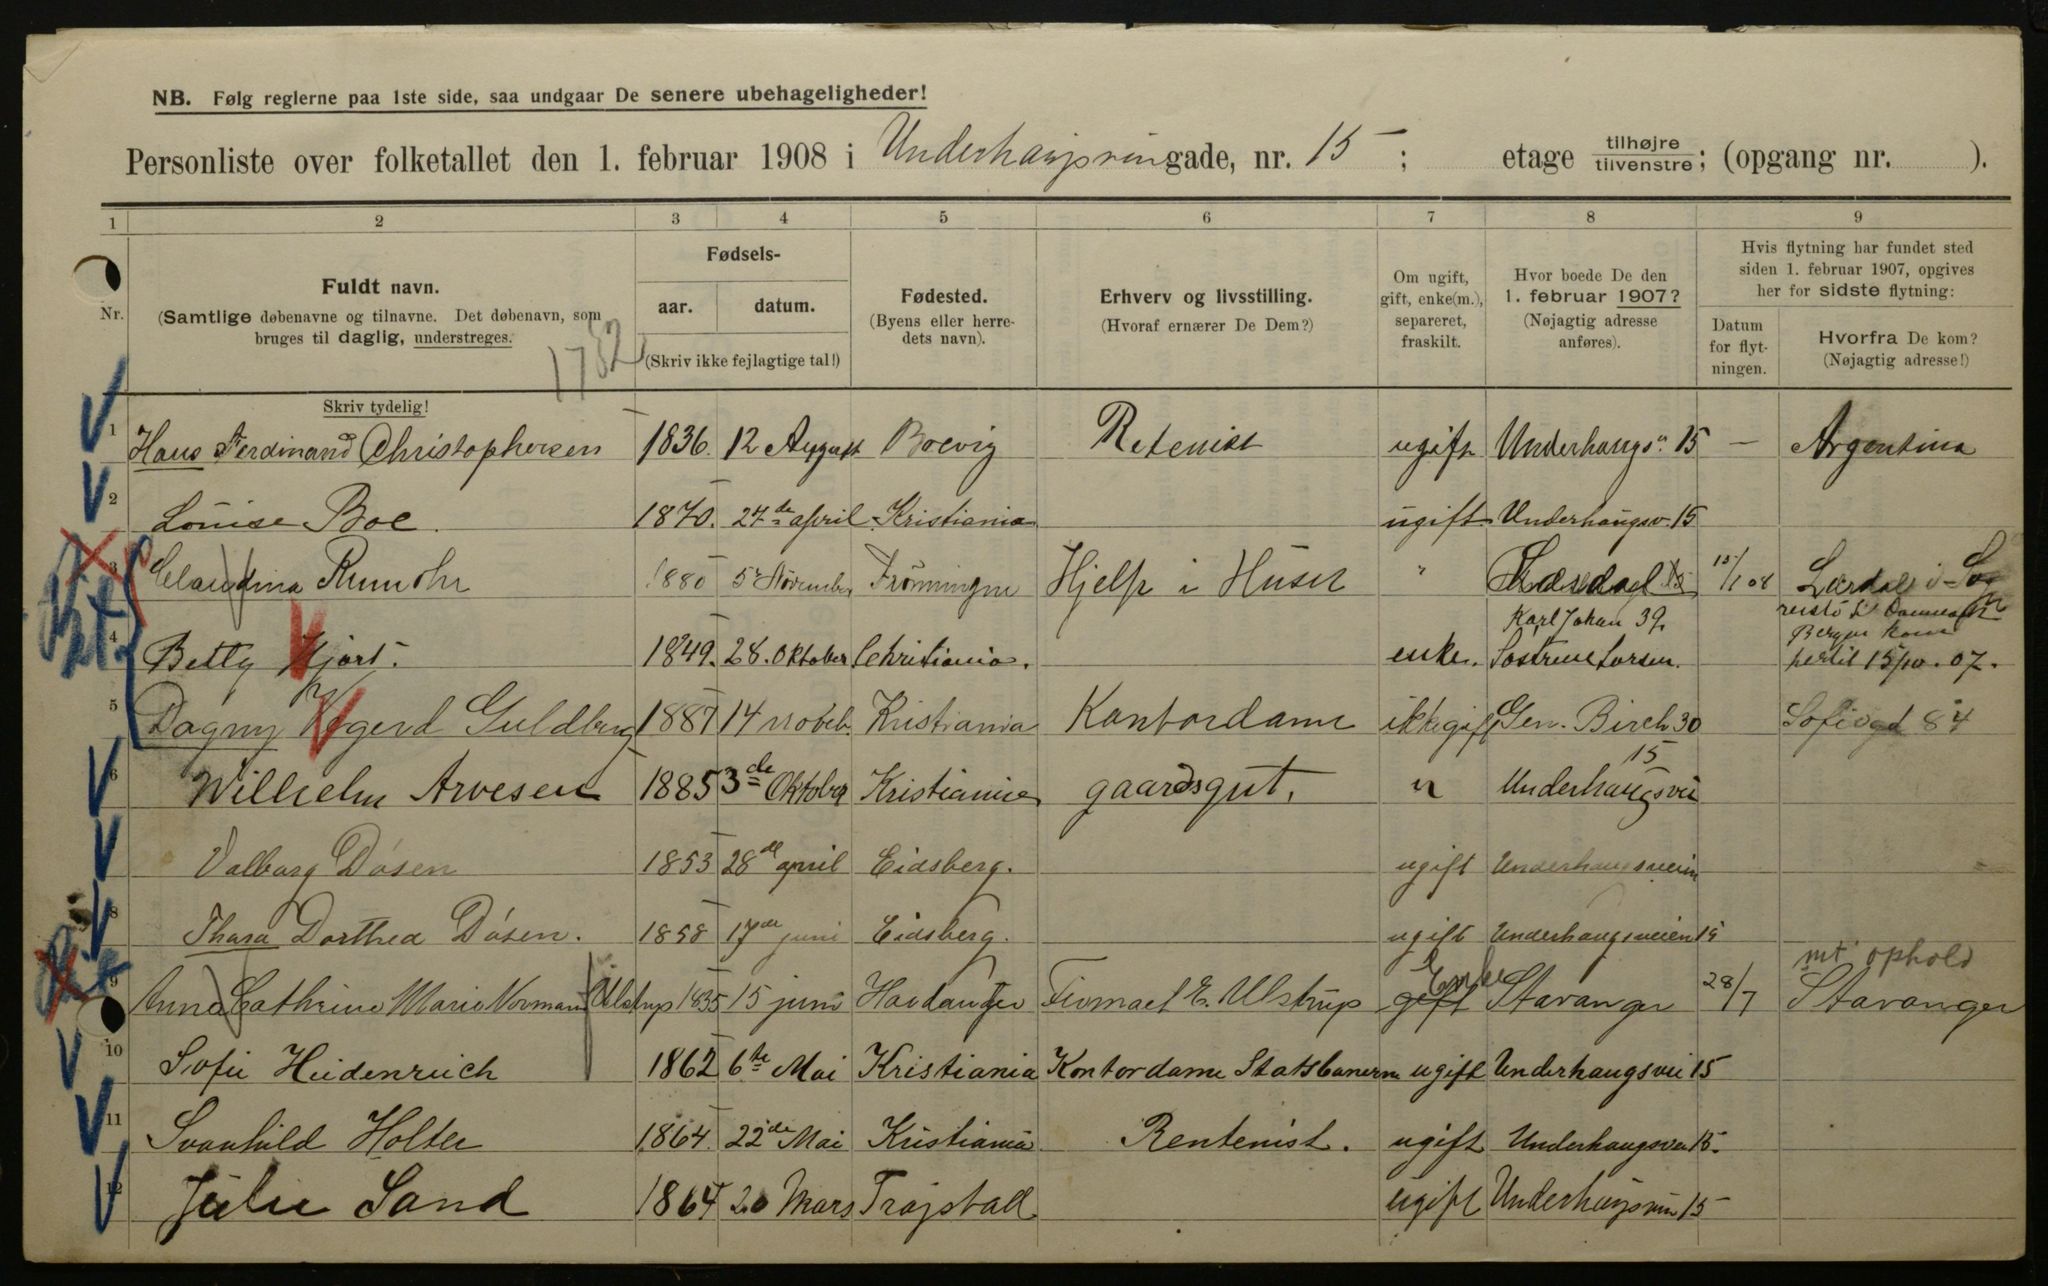 NB. Følg reglerne paa 1ste side, saa undgaar De senere ubehageligheder!
Personliste over folketallet den 1. februar 1908 i Underhaugsveien gade, nr. 15 ; etage tilhøjre tilvenstre ; (opgang nr. ).
1 2 3 4 5 6 7 8 9
Nr.
Fuldt navn.
(Samtlige døbenavne og tilnavne. Det døbenavn, som bruges til daglig, understreges.
Fødsels-
aar. datum.
(Skriv ikke fejlagtige tal!)
Fødested.
(Byens eller herredets navn).
Erhverv og livsstilling.
(Hvoraf ernærer De Dem?)
Om ugift, gift, enke(m.), separeret, fraskilt.
Hvor boede De den 1. februar 1907?
(Nøjagtig adresse anføres).
Hvis flytning har fundet sted siden 1. februar 1907, opgives her for sidste flytning:
Datum for flytningen.
Hvorfra De kom?
(Nøjagtig adresse!)
Skriv tydelig!
1 Hans Ferdinand Christophersen 1836. 12 August Brevig Retenist ugift Underhaugsv. 15 — Argentina
2 Louise Boe. 1870. 27de april Kristiania ugift Underhaugsv. 15
3 Claudina Rumohr 1880 5 November Frönningen Hjelp i Huset " 15/1 08 Lærdal i Sogn
4 Betty Hjort. 1849. 28. Oktober Christiania. enke. Karl Johan 39. Søstrene Larsen. Bergen kom hertil 15/10. 07.
5 Dagny Guldberg 1887 14 Kristiania Kontordame ikke gift Gen. Birch 30 Sofiegd 84
6 Wilhelm Arvesen 1885 3de Oktober Kristiania gaardsgut. " Underhaugsvei 15
Valborg Dösen 1853 28de april Eidsberg. ugift Underhaugsveien
8 Thara Dorthea Dösen. 1858 17de juni Eidsberg. ugift Underhaugsveien 15
9 Anna Cathrine Marie Norman Ulstrup 1835 15 juni Hardanger Firmaet E. Ulstrup gift Enke Stavanger 28/7 Stavanger
mt ophold
10 Sofie Heidenreich 1862 6te Mai Kristiania Kontordame Statsbanerne ugift Underhaugsvei 15
11 Svanhild Holter 1864. 22de Mai Kristiania Rentenist. ugift Underhaugsvei 15.
12 Julie Sand 1864 20 Mars Trøjstad ugift Underhaugsvein 15